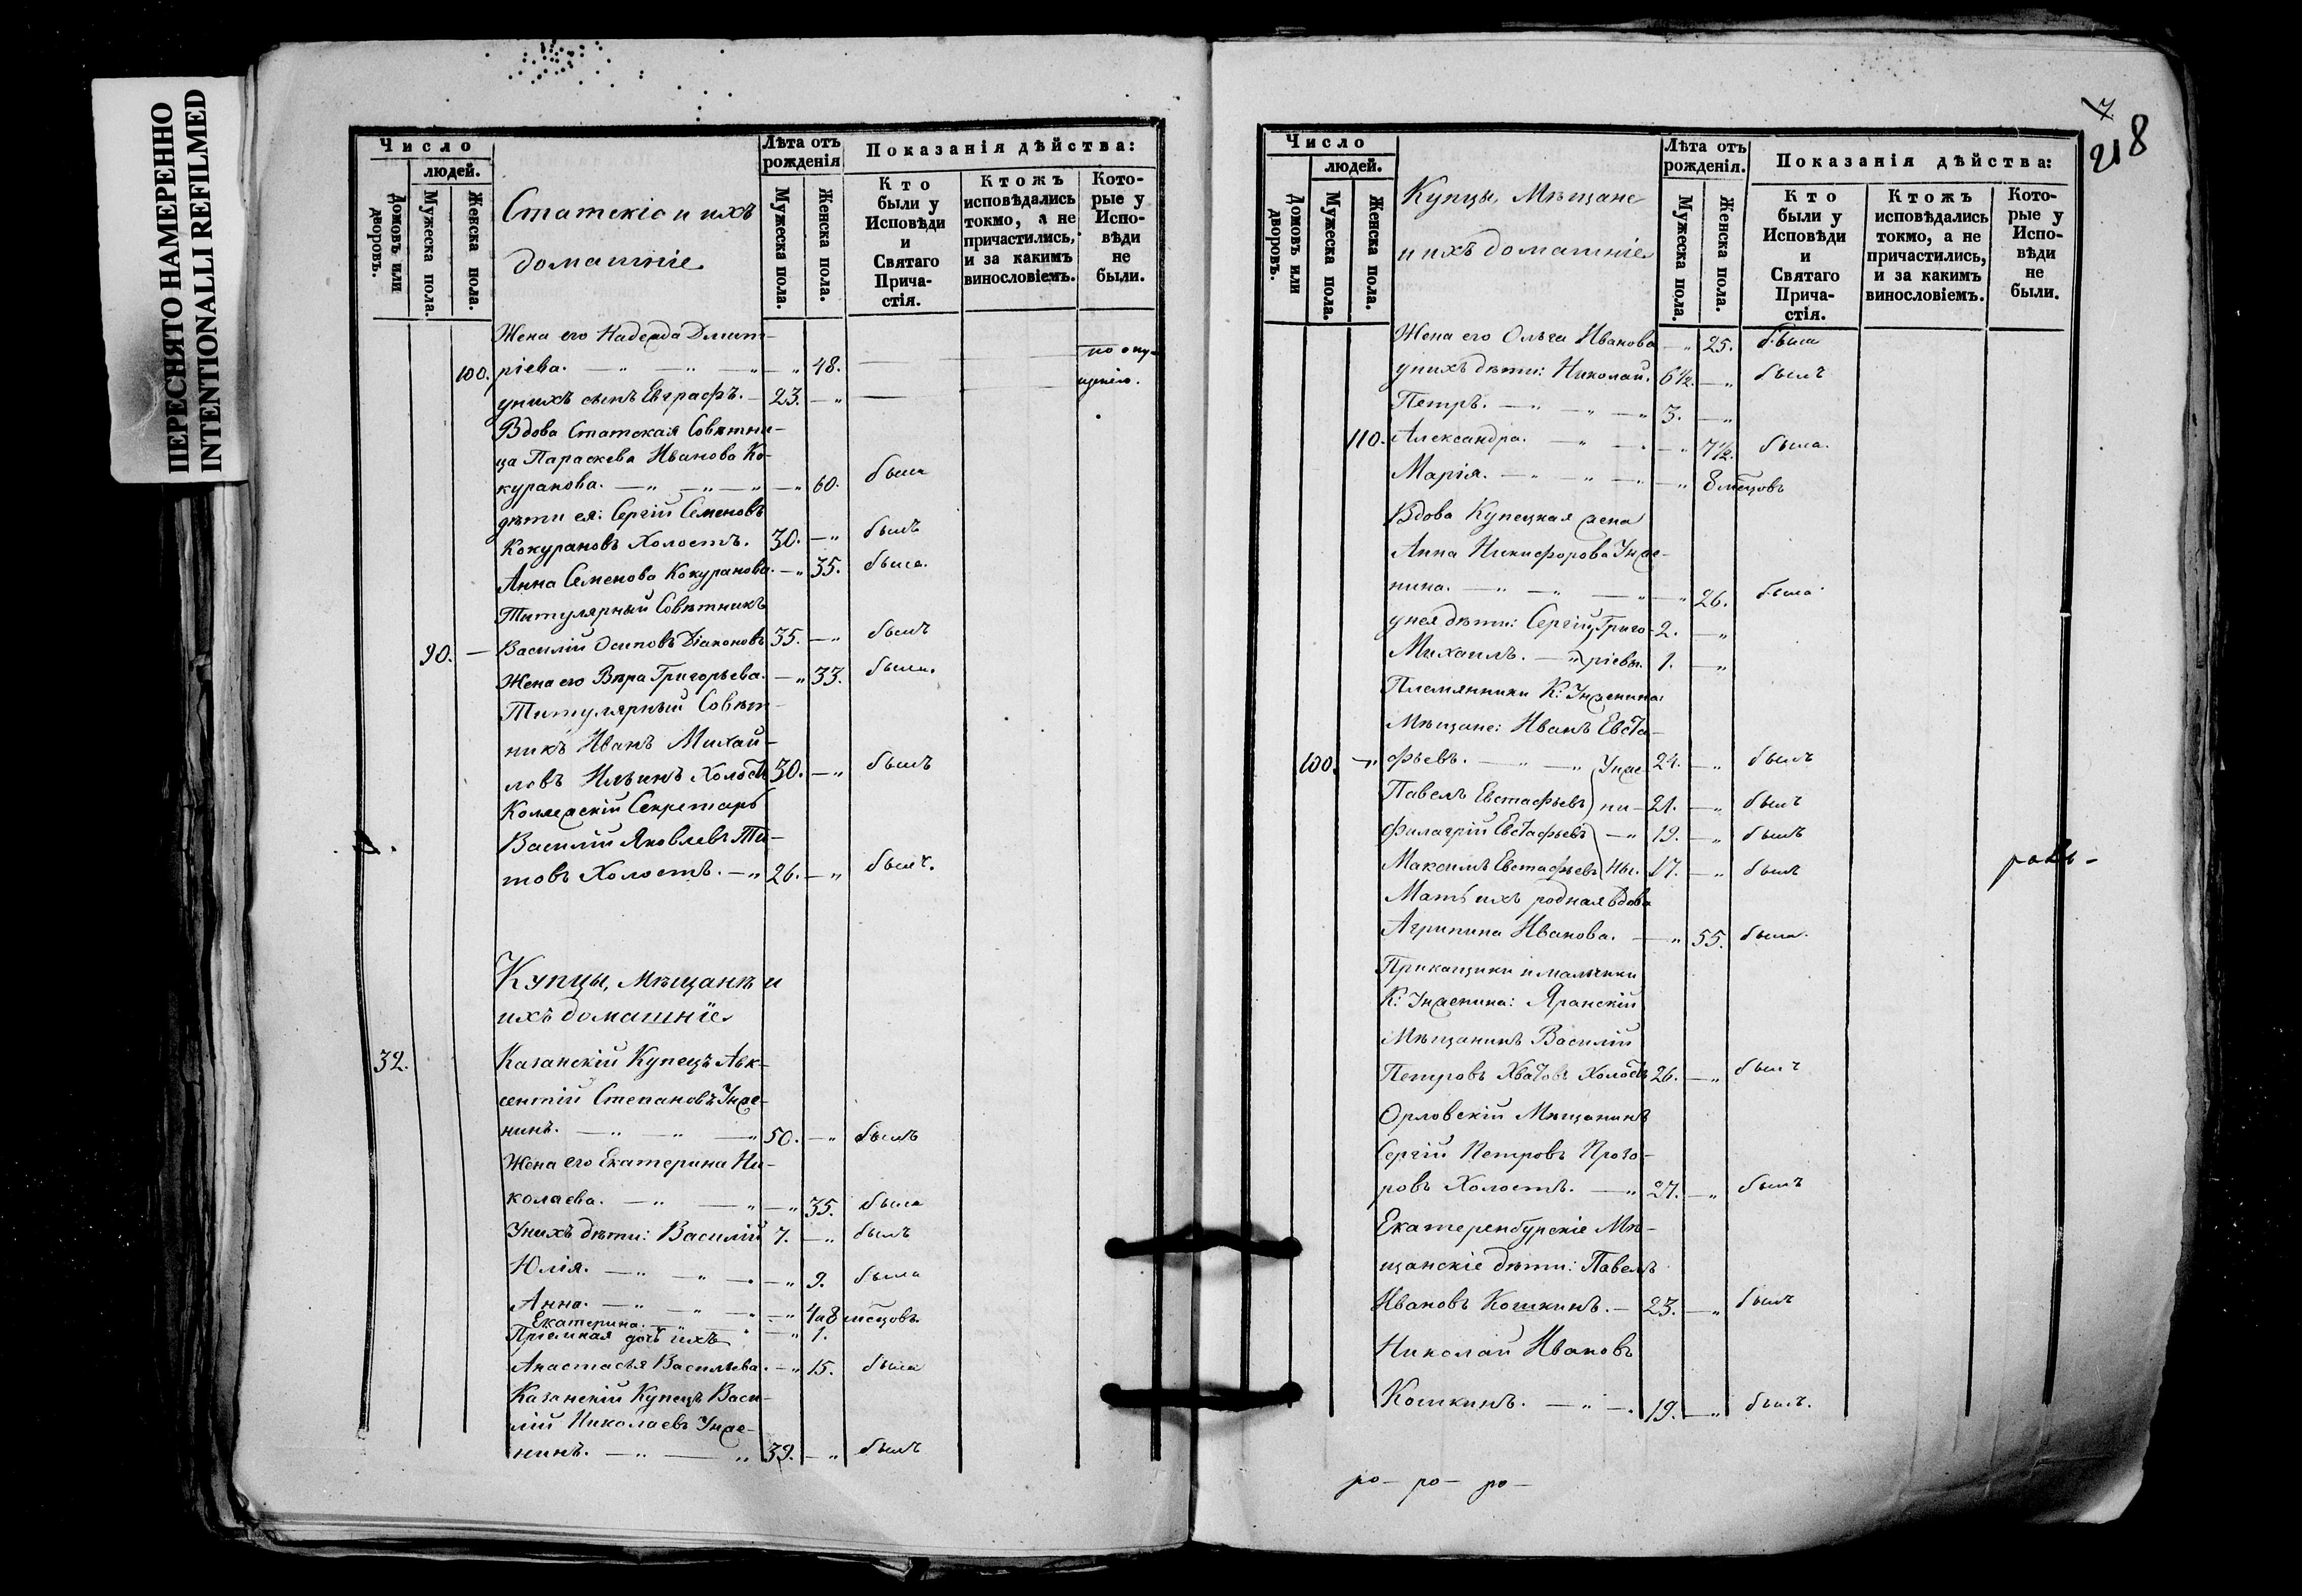 ПЕРЕСНЯТО НАМЕРЕННО
INTENTIONALLI REFILMED
Число
людей.
Домовъ или дворовъ.
Мужеска пола.
Женска пола.
Статскіе и ихъ
домашніе
Лѣта отъ рожденія
Мужеска пола.
Женска пола.
Показанія дѣйства:
Кто были у Исповѣди и Святаго Причастія.
Ктожъ исповѣдались токмо, а не причастились, и за какимъ винословіемъ.
Которые у Исповѣди не были.
Жена его Надежда Дмит-
100. ріева. 48. по опу-
у нихъ сынъ Евграфъ. 23. щенію.
Вдова Статская Совѣтни-
ца Параскева Иванова Ко-
куранова. 60. была
дѣти ея: Сергій Семеновъ
Кокурановъ Холостъ. 30. былъ
Анна Семенова Кокуранова. 35. была.
Титулярный Совѣтникъ
90. Василій Осиповъ Діаконовъ 35. былъ
Жена его Вѣра Григорьева. 33. была.
Титулярный Совѣт-
никъ Иванъ Михай-
ловъ Ильинъ Холостъ 30. былъ
Коллежскій Секретарь
Василій Яковлевъ Ти-
товъ Холостъ. 26. былъ.
Купцы, Мѣщанѣ и
ихъ домашніе
32. Казанскій Купецъ Авк-
сентій Степановъ Унже-
нинъ. 50. былъ
Жена его Екатерина Ни-
колаева. 35. была
У нихъ дѣти: Василій 7. былъ
Юлія. 9. была
Анна. 4 и 8 месцовъ
Екатерина. 1.
Пріемная дочь ихъ
Анастасья Васильева. 15. была
Казанскій Купецъ Васи-
лій Николаевъ Унже-
нинъ. 39. былъ
7
218
Число
людей.
Домовъ или дворовъ.
Мужеска пола.
Женска пола.
Купцы, Мѣщане
и ихъ домашніе
Лѣта отъ рожденія.
Мужеска пола.
Женска пола.
Показанія дѣйства:
Кто были у Исповѣди и Святаго Причастія.
Ктожъ исповѣдались токмо, а не причастились, и за какимъ винословіемъ.
Которые у Исповѣди не были.
Жена его Ольга Иванова 25. была
у нихъ дѣти: Николай. 6½. былъ
Петръ. 3.
110. Александра. 7½. была.
Марія. 8 мѣсцовъ
Вдова Купецкая жена
Анна Никифорова Унже-
нина. 26. была
у нея дѣти: Сергій Григо- 2.
Михаилъ. ріевы. 1.
Племянники К: Унженина:
Мѣщане: Иванъ Евста-
100. фьевъ. Унже- 24. былъ
Павелъ Евстафьевъ ни- 21. былъ
Филагрій Евстафьевъ 19. былъ
Максимъ Евстафьевъ ны. 17. былъ
Мать ихъ родная вдова
Агрипина Иванова. 55. была.
Прикащики и мальчики
К: Унженина: Яранскій
Мѣщанинъ Василій
Петровъ Хватовъ Холостъ 26. былъ
Орловскій Мѣщанинъ
Сергій Петровъ Прозо-
ровъ Холостъ. 27. былъ
Екатеренбурскіе Мѣ-
щанскіе дѣти: Павелъ
Ивановъ Кошкинъ. 23. былъ
Николай Ивановъ
Кошкинъ. 19. былъ.
ро- ро- ро-